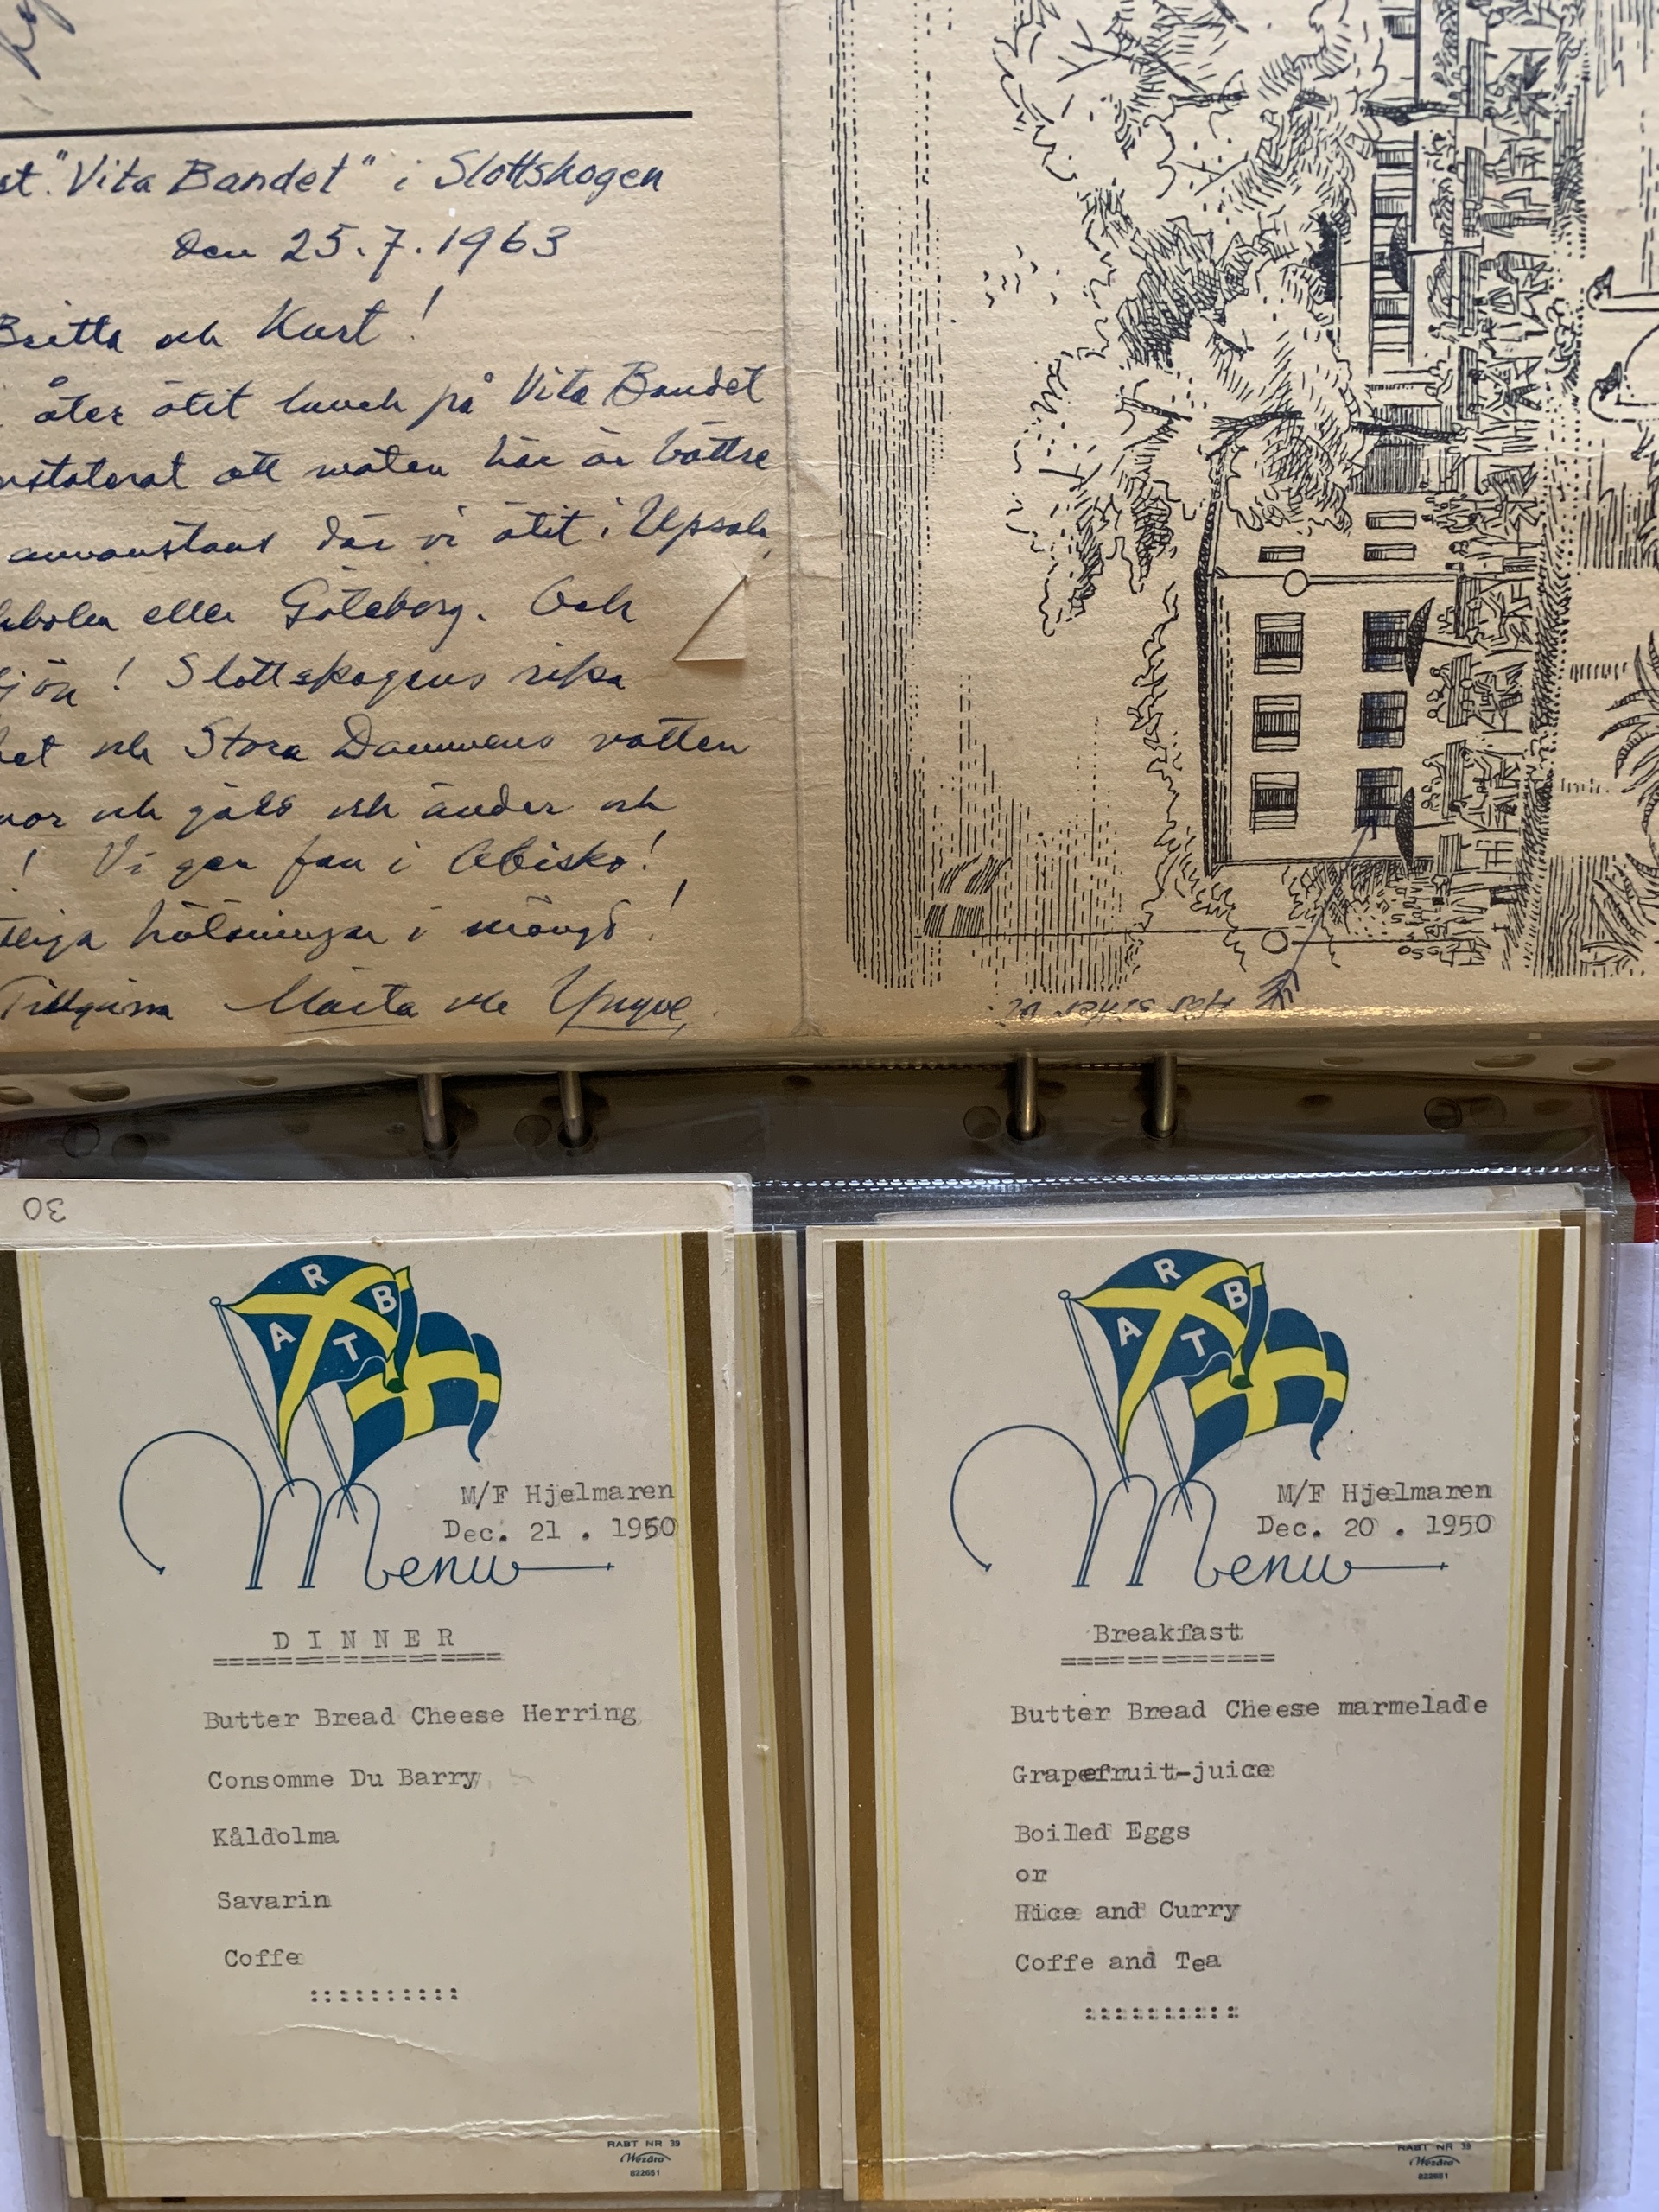 st. "Vita Bandet" i Slottskogen
den 25.7.1963
Britta och Kurt!
åter ätit lunch på Vita Bandet
nstaterat att maten här är bättre
annanstans där vi ätit i Upsala,
kholm eller Göteborg. Och
sjön! Slottskogens rika
het och Stora Dammens vatten
nor och gäss och änder och
! Vi ger fan i Abisko!
tliga hälsningar i mängd!
Tillgivna Märta och Yngve.
Här sitter vi.
30
A R B T
M/F Hjelmaren
Dec. 21 . 1950
Menu
DINNER
Butter Bread Cheese Herring
Consomme Du Barry
Kåldolma
Savarin
Coffe
RABT NR 39
Wezäta
822651
A R B T
M/F Hjelmaren
Dec. 20 . 1950
Menu
Breakfast
Butter Bread Cheese marmelade
Grapefruit-juice
Boiled Eggs
or
Rice and Curry
Coffe and Tea
RABT NR 39
Wezäta
822651